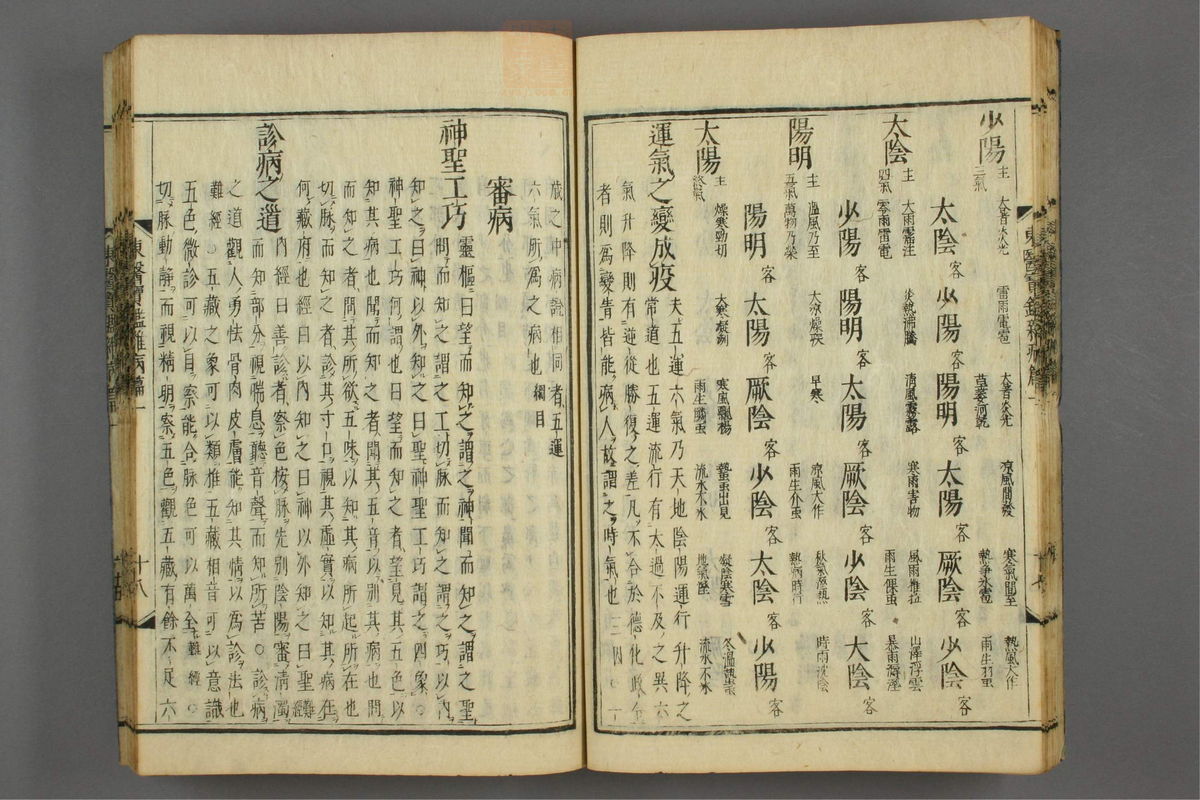 少陽 主 三氣
太陰 客
少陽 客
陽明 客
太陽 客
厥陰 客
少陰 客
雷雨電雹
大暑炎光
草萎河乾
涼風間發
寒氣間至
熱爭氷雹
熱風大作
雨生羽虫
太陰 主 四氣
大雨霪注
雫雨雷電
少陽 客
陽明 客
太陽 客
厥陰 客
少陰 客
太陰 客
炎熱沸騰
淸風霧露
寒雨害物
風雨摧拉
雨生倮虫
山澤浮雲
暴雨溽溼
陽明 主 五氣
溫風乃至
萬物乃榮
陽明 客
太陽 客
厥陰 客
少陰 客
太陰 客
少陽 客
大涼燥疾
早寒
凉風大作
雨生介虫
秋氣溼熱
熱病時行
時雨沈陰
太陽 主 終氣
燥寒勁切
大寒凝冽
寒風飄揚
雨生鱗虫
蟄虫出見
流水不氷
凝陰寒雪
地氣溼
冬溫蟄虫
流水不氷
運氣之變成疫 夫五運六氣乃天地陰陽運行升降之
常道也五運流行有太過不及之異六
氣升降則有逆從勝復之差凡不合於德化政令
者則爲變眚皆能病人故謂之時氣也 三因
歲之中病證相同者五運
六氣所爲之病也 綱目
審病
神聖工巧 靈樞曰望而知之謂之神聞而知之謂之聖
問而知之謂之工切脉而知之謂之巧以內
知之曰神以外知之曰聖神聖工巧謂之四象○
神聖工巧何謂也曰望而知之者望見其五色以
知其病也聞而知之者聞其五音以別其病也問
而知之者問其所欲五味以知其病所起所在也
切脉而知之者診其寸口視其虛實以知其病在
何藏府也經曰以內知之曰神以外知之曰聖 難經
診病之道 內經曰善診者察色按脉先別陰陽審淸濁
而知部分視喘息聽音聲而知所苦○診病
之道觀人勇怯骨肉皮膚能知其情以爲診法也
難經○五藏之象可以類推五藏相音可以意識
五色微診可以目察能合脉色可以萬全 難經○
切脉動靜而視精明察五色觀五藏有餘不足六
東醫寶鑑雜病篇一
十八